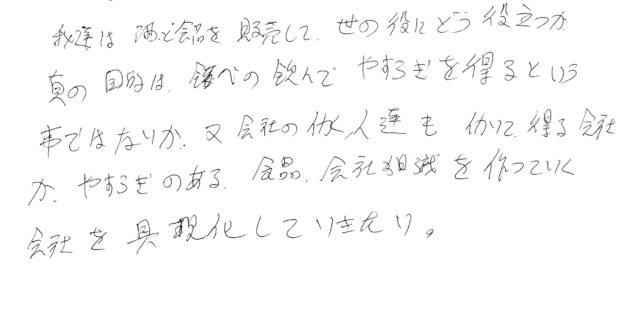 我達は 酒と食品を 販売して、世の役にどう役立つか
真の目的は、食べの飲んで やすらぎを得るという
事ではないか、又会社の働く人達も 働いて、得る会社
か、やすらぎのある、食品、会社組織を作っていく
会社を具現化していきたい。